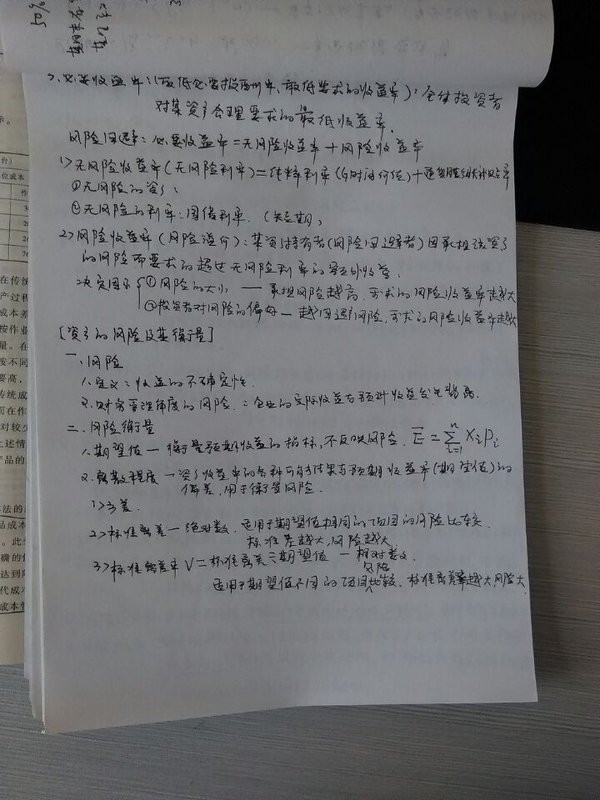 50%
3、必要收益率:(最低必要报酬率、最低要求的收益率):全体投资者
对某资产合理要求的最低收益率.
风险回避率:必要收益率=无风险收益率+风险收益率
1>无风险收益率(无风险利率)=纯粹利率(时间价值)+通货膨胀补贴率
①无风险的资产:
②无风险的利率:国债利率.(短期)
2>风险收益率(风险溢价):某资产持有者(风险回避者)因承担该资产
的风险而要求的超过无风险利率的额外收益.
决定因素 ①风险的大小 — 承担风险越高,要求的风险收益率越大
②投资者对风险的偏好—越回避风险,要求的风险收益率越大
[资产的风险及其衡量]
一、风险
1.定义:收益的不确定性.
2.财务管理角度的风险:企业的实际收益与预计收益发生背离.
二、风险衡量
1.期望值—衡量预期收益的指标,不反映风险. E̅=∑ⁿᵢ₌₁XᵢPᵢ
2.离散程度—资产收益率的各种可能结果与预期收益率(期望值)的
偏差,用于衡量风险.
1>方差.
2>标准离差—绝对数.适用于期望值相同的项目的风险比较
标准差越大,风险越大
3>标准离差率V=标准离差÷期望值 — 相对数.
适用于期望值不同的项目风险比较.标准离差率越大,风险大.